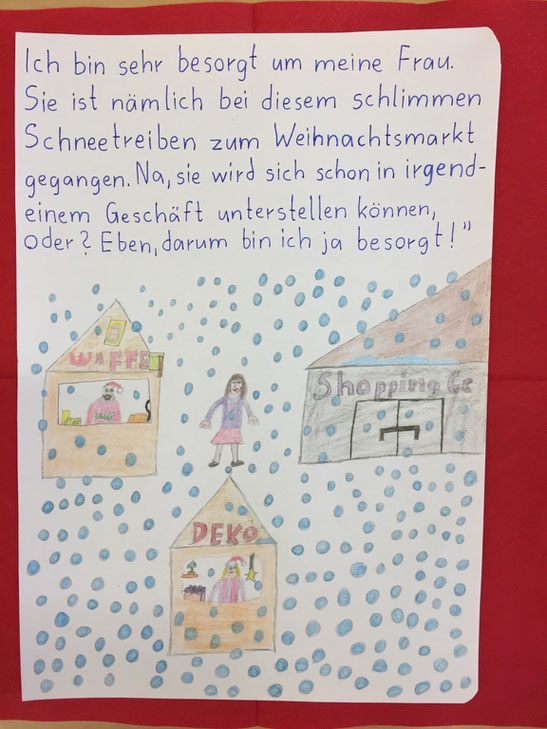 Ich bin sehr besorgt um meine Frau.
Sie ist nämlich bei diesem schlimmen
Schneetreiben zum Weihnachtsmarkt
gegangen. Na, sie wird sich schon in irgend-
einem Geschäft unterstellen können,
oder? Eben, darum bin ich ja besorgt!"
WAFFE
Shopping Ce
DEKO